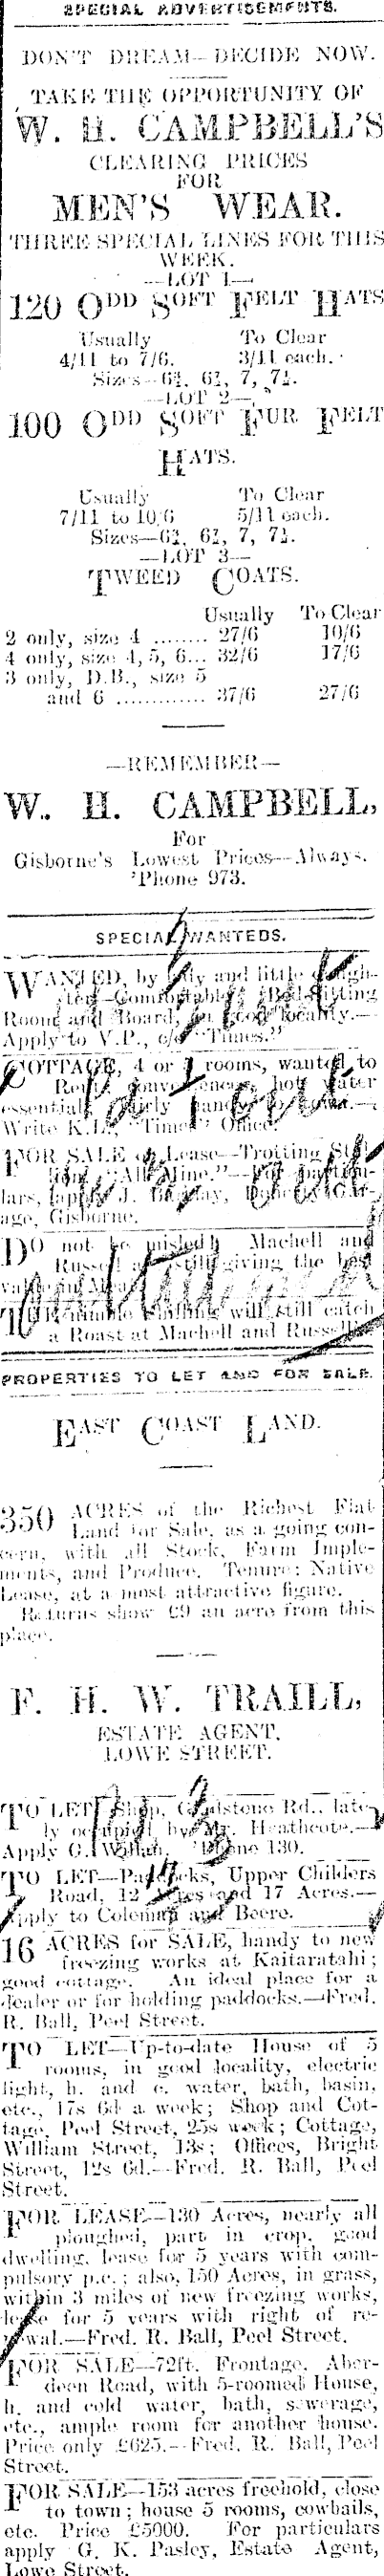 SPECIAL ADVERTISEMENTS.
DON'T DREAM—DECIDE NOW.
TAKE THE OPPORTUNITY OF
W. H. CAMPBELL'S
CLEARING PRICES
FOR
MEN'S WEAR.
THREE SPECIAL LINES FOR THIS
WEEK.
—LOT 1—
120 ODD SOFT FELT HATS
Usually To Clear
4/11 to 7/6. 3/11 each.
Sizes—6¾, 6¾, 7, 7¼.
—LOT 2—
100 ODD SOFT FUR FELT
HATS.
Usually To Clear
7/11 to 10/6 5/11 each.
Sizes—6¾, 6¾, 7, 7¼.
—LOT 3—
TWEED COATS.
Usually To Clear
2 only, size 4 ........ 27/6 10/6
4 only, size 4, 5, 6... 32/6 17/6
3 only, D.B., size 5
and 6 ............. 37/6 27/6
—REMEMBER—
W. H. CAMPBELL,
For
Gisborne's Lowest Prices—Always.
'Phone 973.
SPECIAL WANTEDS.
WANTED, by Lady and little Daugh-
ter—Comfortable Bed-Sitting
Room and Board, in good locality.—
Apply to V.P., c/o "Times."
COTTAGE, 4 or 5 rooms, wanted to
Rent, conveniences, hot water
essential, handy town.—
Write K.L., "Times" Office.
FOR SALE or Lease—Trotting Stal-
lion, "All Mine."—For particu-
lars, apply J. Gar-
age, Gisborne.
DO not be misled! Machell and
Russell are still giving the best
value in Meat.
THE Humble Shilling will still catch
a Roast at Machell and Russell's.
PROPERTIES TO LET AND FOR SALE.
EAST COAST LAND.
350 ACRES of the Richest Flat
Land for Sale, as a going con-
cern, with all Stock, Farm Imple-
ments, and Produce. Tenure: Native
Lease, at a most attractive figure.
Returns show £9 an acre from this
place.
F. H. W. TRAILL,
ESTATE AGENT,
LOWE STREET.
TO LET—Shop, Gladstone Rd., late-
ly occupied by Mr. Heathcote.—
Apply G. 'Phone 130.
TO LET—Paddocks, Upper Childers
Road, 12 Acres and 17 Acres.—
Apply to Coleman and Beere.
16 ACRES for SALE, handy to new
freezing works at Kaitaratahi;
good cottage. An ideal place for a
dealer or for holding paddocks.—Fred.
R. Ball, Peel Street.
TO LET—Up-to-date House of 5
rooms, in good locality, electric
light, h. and c. water, bath, basin,
etc., 17s 6d a week; Shop and Cot-
tage, Peel Street, 25s week; Cottage,
William Street, 13s; Offices, Bright
Street, 12s 6d.—Fred. R. Ball, Peel
Street.
FOR LEASE—130 Acres, nearly all
ploughed, part in crop, good
dwelling, lease for 5 years with com-
pulsory p.c.; also, 150 Acres, in grass,
within 3 miles of new freezing works,
lease for 5 years with right of re-
newal.—Fred. R. Ball, Peel Street.
FOR SALE—72ft. Frontage, Aber-
deen Road, with 5-roomed House,
h. and cold water, bath, sewerage,
etc., ample room for another house.
Price only £625.—Fred. R. Ball, Peel
Street.
FOR SALE—153 acres freehold, close
to town; house 5 rooms, cowbails,
etc. Price £5000. For particulars
apply G. K. Pasley, Estate Agent,
Lowe Street.